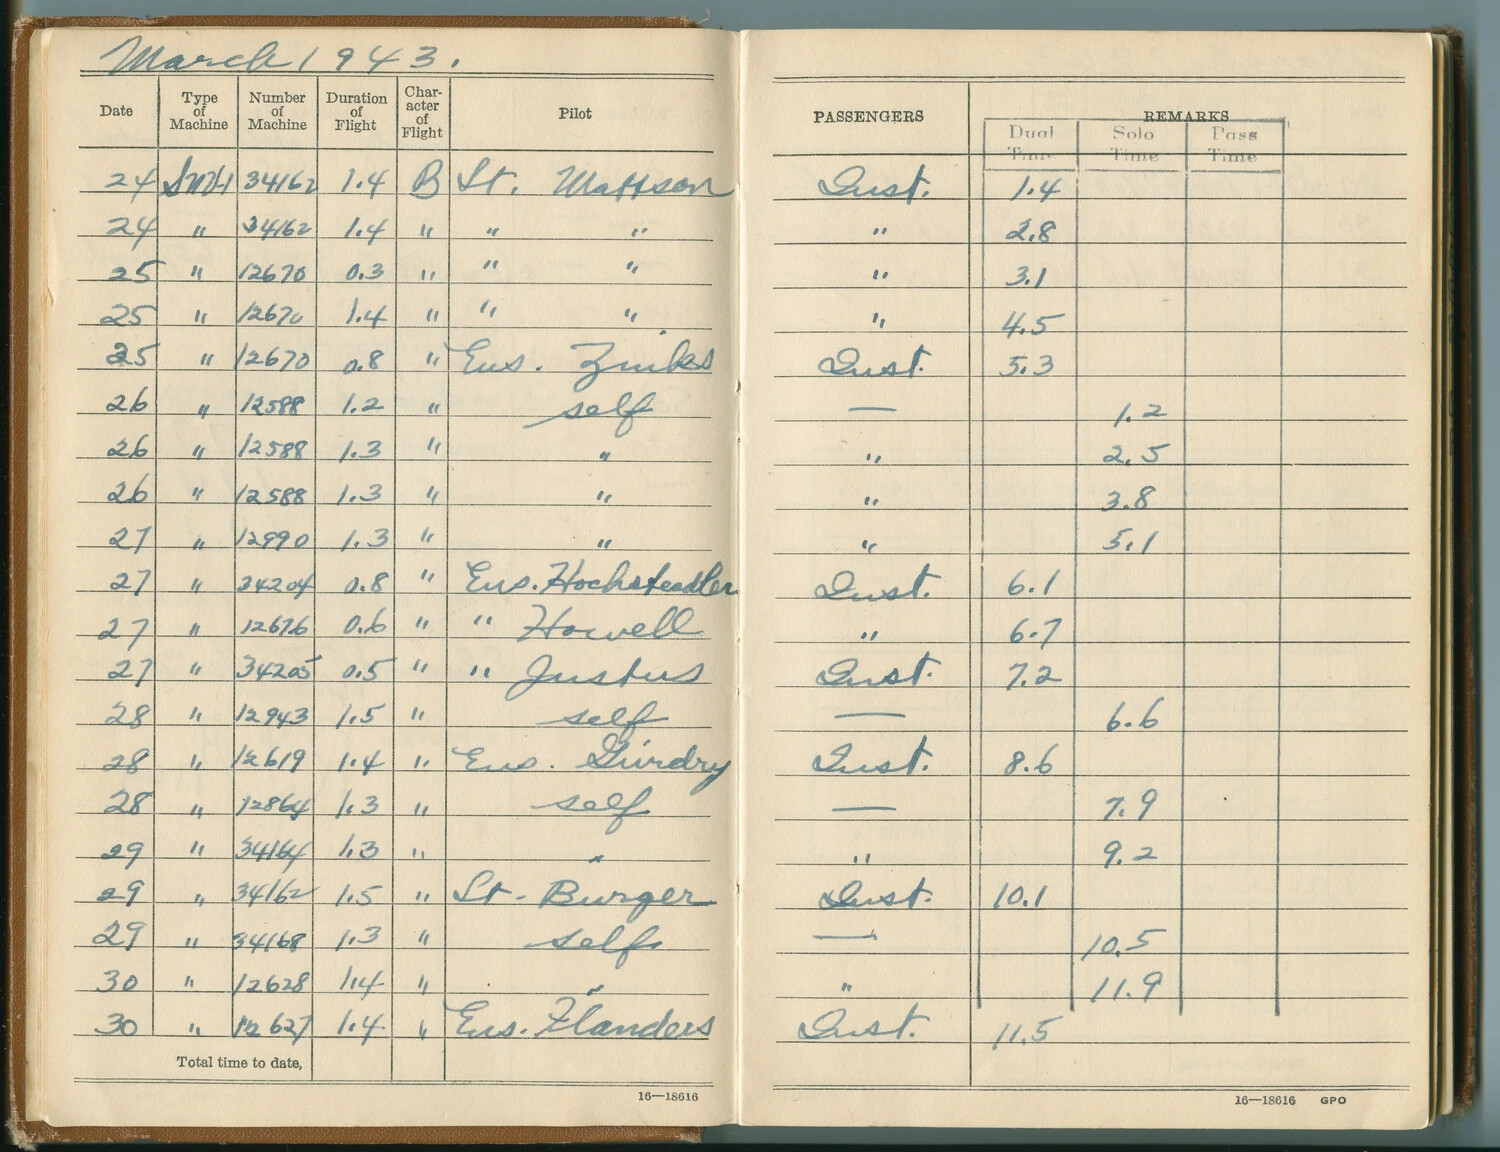 March 1943.
Date Type of Machine Number of Machine Duration of Flight Character of Flight Pilot PASSENGERS REMARKS
Dual Time Solo Time Pass Time
24 SNV-1 34162 1.4 B Lt. Mattson Inst. 1.4
24 " 34162 1.4 " " " " 2.8
25 " 12670 0.3 " " " " 3.1
25 " 12670 1.4 " " " " 4.5
25 " 12670 0.8 " Ens. Zinks Inst. 5.3
26 " 12588 1.2 " self — 1.2
26 " 12588 1.3 " " " 2.5
26 " 12588 1.3 " " " 3.8
27 " 12990 1.3 " " " 5.1
27 " 34204 0.8 " Ens. Hochsteadler Inst. 6.1
27 " 12676 0.6 " " Howell " 6.7
27 " 34205 0.5 " " Justus Inst. 7.2
28 " 12943 1.5 " self — 6.6
28 " 12619 1.4 " Ens. Inst. 8.6
28 " 12864 1.3 " self — 7.9
29 " 34164 1.3 " " " 9.2
29 " 34162 1.5 " Lt. Burger Inst. 10.1
29 " 34168 1.3 " self — 10.5
30 " 12628 1.4 " " " 11.9
30 " 12627 1.4 " Ens. Flanders Inst. 11.5
Total time to date,
16—18616
16—18616 GPO